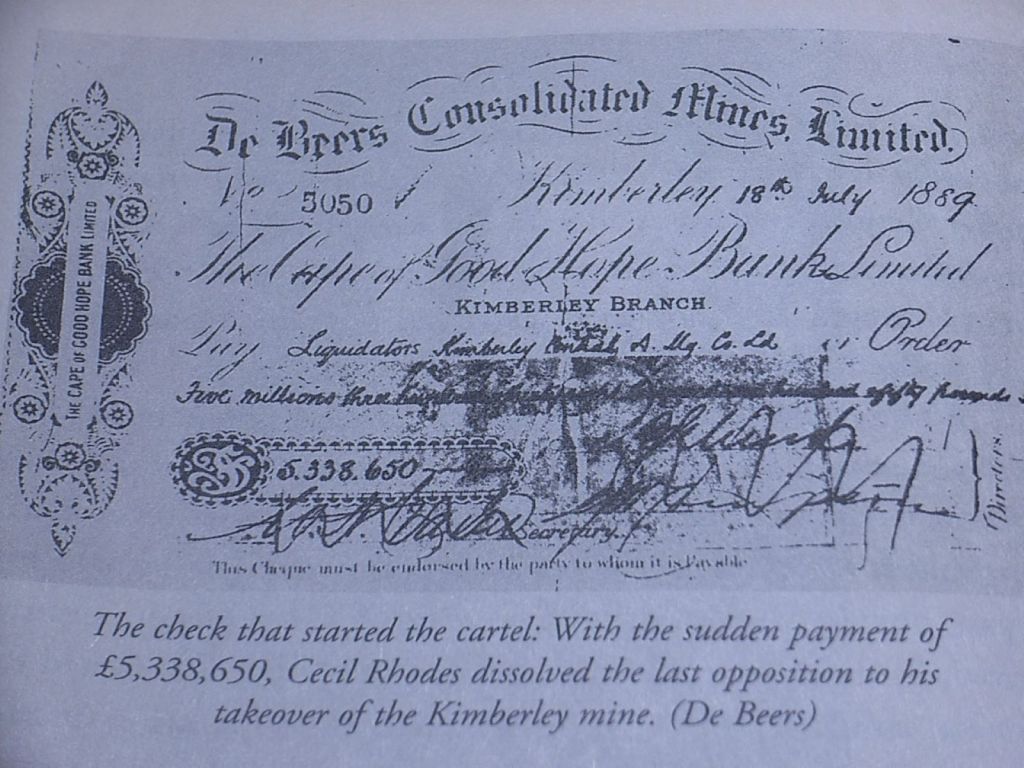 De Beers Consolidated Mines, Limited.
No 5050 Kimberley 18th July 1889
The Cape of Good Hope Bank Limited
KIMBERLEY BRANCH.
Pay Liquidators Kimberley Central D. Mg. Co. Ld or Order
Five millions three hundred & thirty eight thousand six hundred & fifty pounds
5.338.650
Secretary.
Directors.
This Cheque must be endorsed by the party to whom it is Payable
THE CAPE OF GOOD HOPE BANK LIMITED
The check that started the cartel: With the sudden payment of
£5,338,650, Cecil Rhodes dissolved the last opposition to his
takeover of the Kimberley mine. (De Beers)